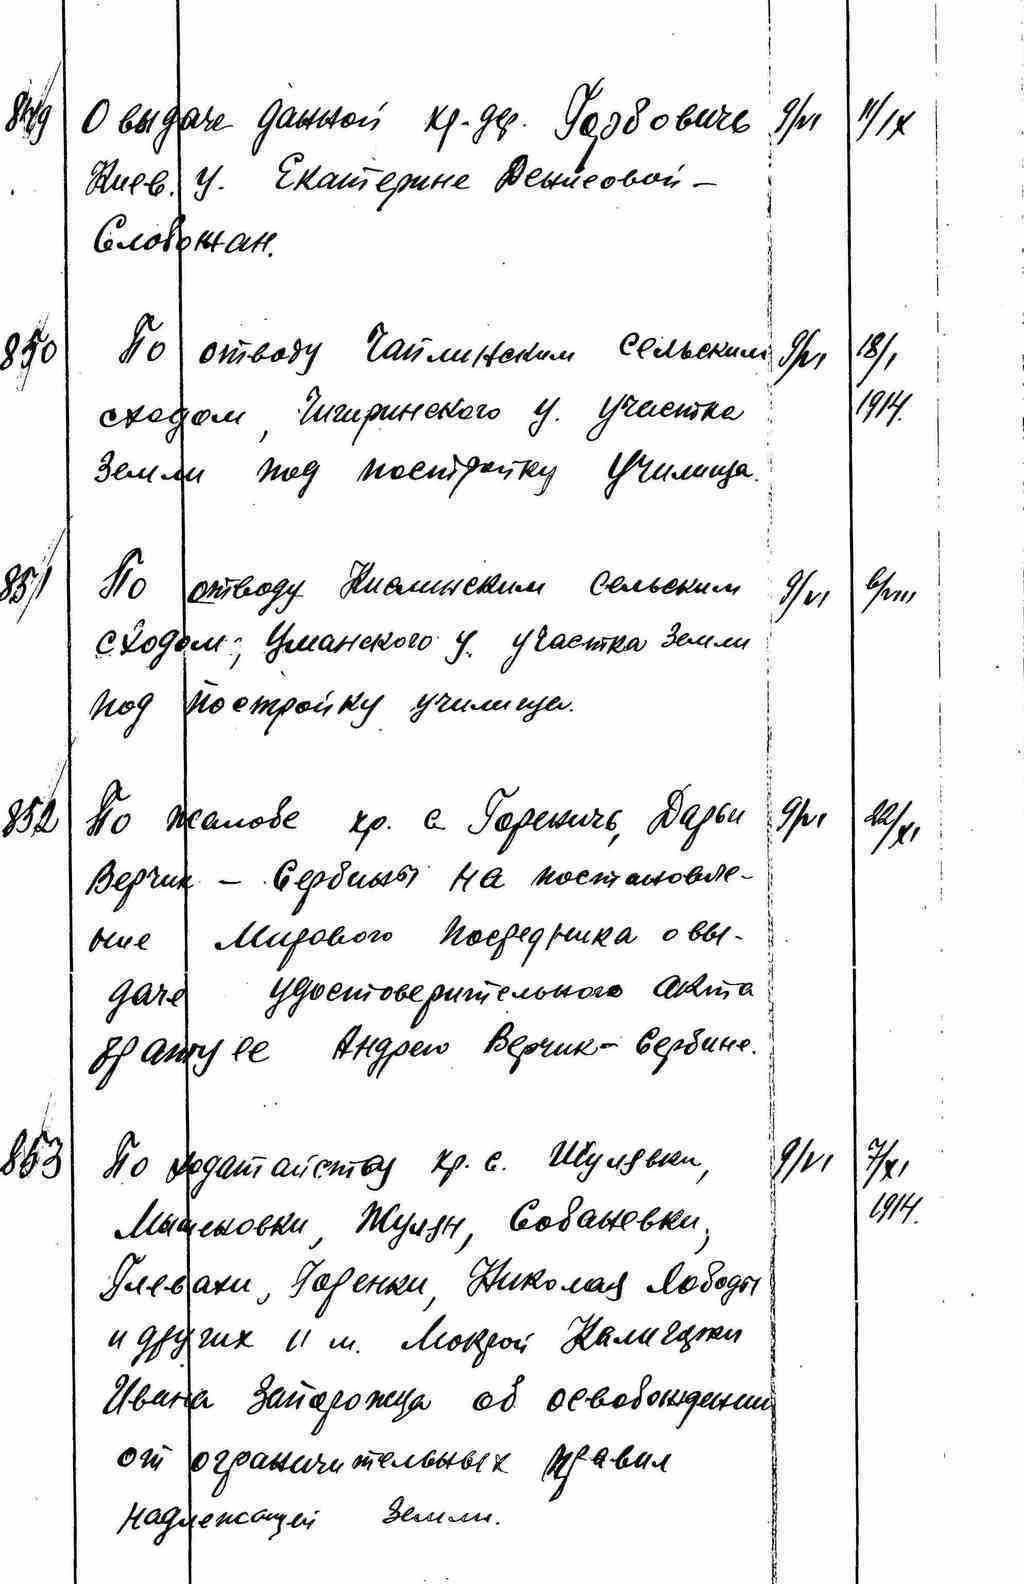 849 О выдаче данной кр. дер. Горбовичь 9/VI 11/IX
Киев. у. Екатерине Денисовой –
Слобожан.
850 По отводу Чаплинским сельским 9/VI 18/I
сходом, Чигиринского у. участка 1914.
земли под постройку училища.
851 По отводу Кислинским сельским 9/VI 6/VIII
сходом, Уманского у. участка земли
под постройку училища.
852 По жалобе кр. с. Гореничь, Дарьи 9/VI 22/XI
Верчик – Сербины на постановле-
ние Мирового Посредника о вы-
даче удостоверительного акта
брату ее Андрею Верчик – Сербине.
853 По ходатайству кр. с. Шулявки, 9/VI 7/XI
Мышеловки, Жулян, Собачевки, 1914.
Глевахи, Горенки, Николая Лободы
и других и м. Мокрой Калигорки
Ивана Запорожца об освобождении
от ограничительных правил
надлежащей земли.